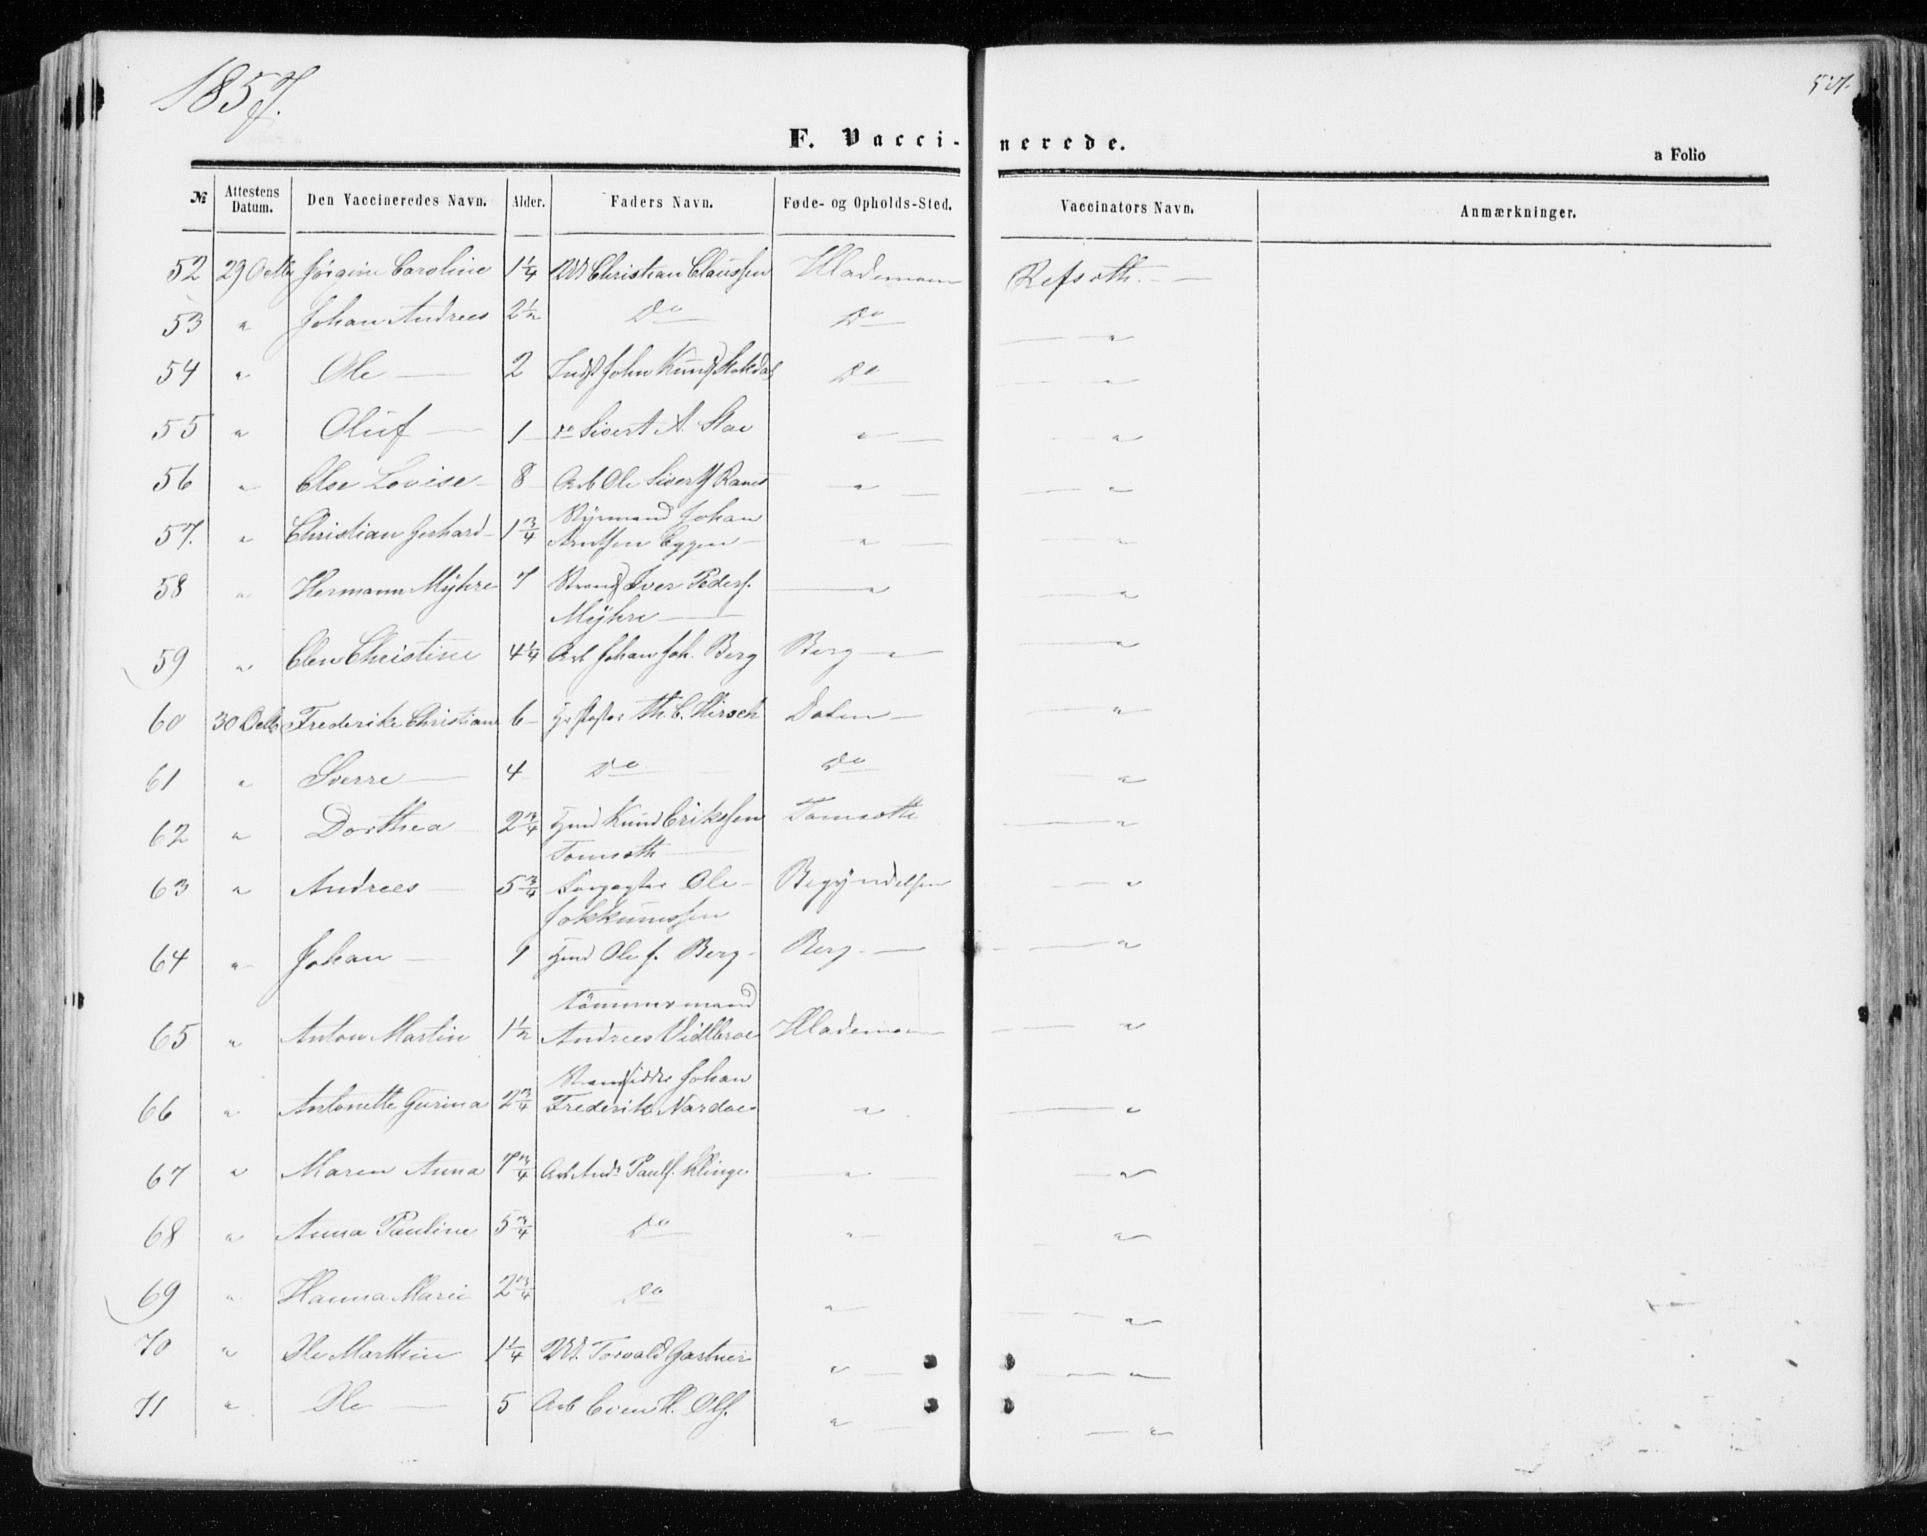 1857.
F. Vaccinerede.
a Folio
№ Attestens Datum. Den Vaccineredes Navn. Alder. Faders Navn. Føde- og Opholds-Sted. Vaccinators Navn. Anmærkninger.
52 29 Octb Jørgine Caroline 1 1/4 Christian Claussen Hlademoen Refsoth.
53 " Johan Andreas 2 1/2 Do Do "
54 " Ole 2 Inds John Kuns Do "
55 " Oluf 1 do Sivert A. Stav " "
56 " Else Lovise 8 Arb Ole Siverts " "
57. " Christian Gerhard 1 3/4 Styrmand Johan
Arntsen Eggen " "
58 " Hermann Myhre 7 Strands Iver Peders.
Myhre " "
59 " Elen Christine 4 1/4 Arb Johan Joh. Berg Berg "
60 30 Octb Frederike Christiane 6 Th. C. Hirsch Dalen "
61 " Sverre 4 Do Do "
62 " Dorthea 2 3/4 Knud Erikssen "
63 " Andreas 5 3/4 Ole Begyndelsen "
Jokkumssen
64 " Johan 1 Ole J. Berg Berg "
65 " Anton Martin 1 1/2 Tømmermand
Andreas Hlademoen "
66 " Antonette Gurina 2 3/4 Strandsidder Johan
Frederik Nardoe " "
67 " Maren Anna 7 3/4 Arb Ands Pauls. Klinge " "
68 " Anna Pauline 5 3/4 Do " "
69 " Hanna Marie 2 3/4 Do " "
70 " Ole 1 1/4 Torvald Gartner " "
71 " Ole 5 Arb Even H. Ols. " "